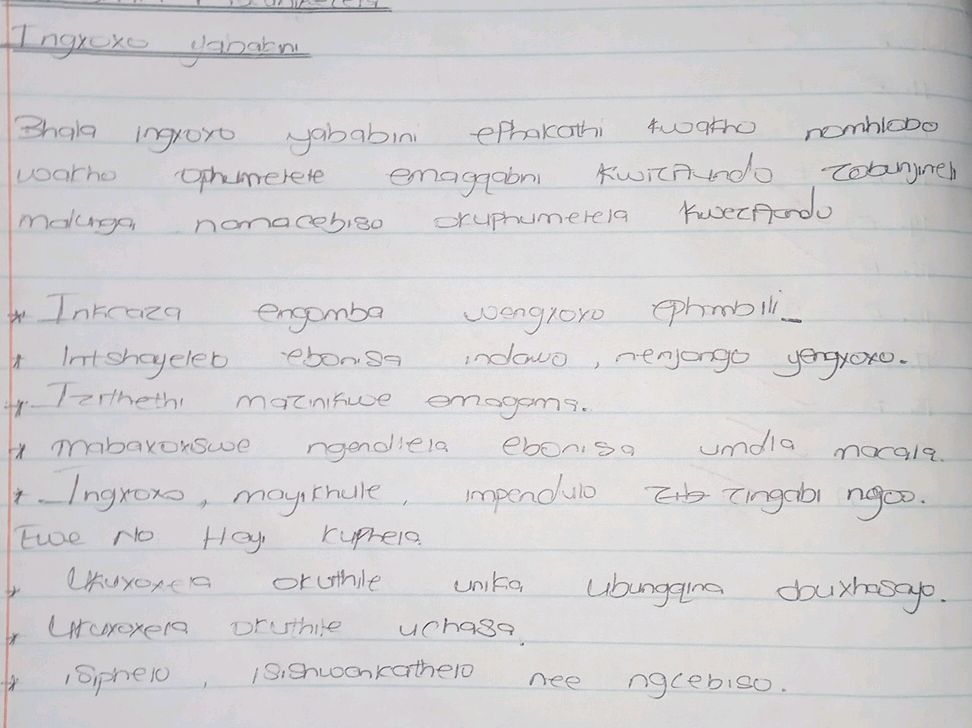 Ingxoxo yababni
Bhala ingxoxo yababini ephakathi kwakho nomhlobo
wakho ophumelele emagqabni kwizifundo zobunjineli
malunga nomacebiso okuphumelela kwezifundo
* Inkcaza engomba wengxoxo ephimbili_
* Intshayelelo ebonisa indawo, nenjongo yengxoxo.
* Izithethi mazinikwe amagama.
* mabaxoxiswe ngendlela ebonisa umdla nocala.
* Ingxoxo, mayikhule, impendulo zingabi ngoo.
Ewe No Hayi kuphela
* Ukuxoxela okuthile unika ubungqina obuxhasayo.
* Ukuxoxela okuthile uchasa.
* isiphelo, isishwankathelo nee ngcebiso.